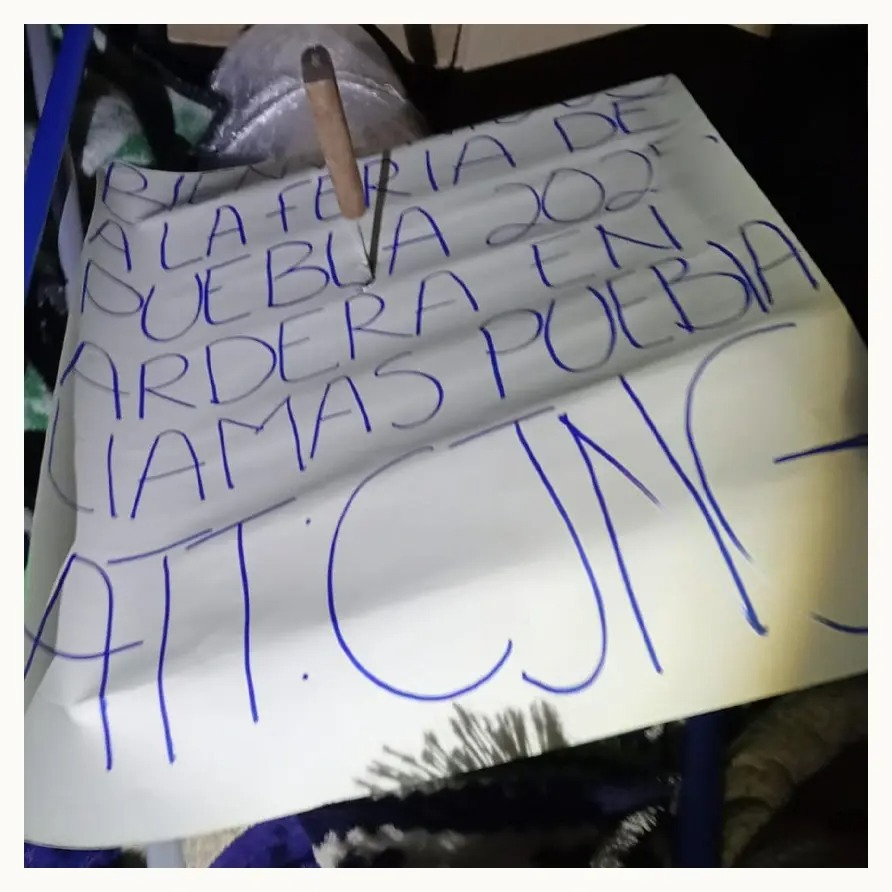 A LA FERIA DE
PUEBLA 202
ARDERA EN
LLAMAS PUEBLA
ATT: CJNG